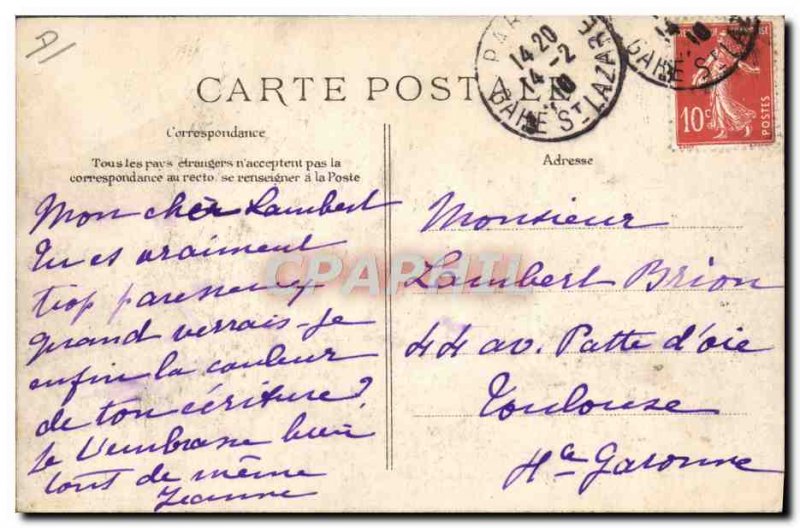 A/
CARTE POSTALE
PARIS
14 20
14 -2
10
GARE ST LAZARE
14
10
GARE ST LAZ
10c
POSTES
Correspondance
Tous les pays étrangers n'acceptent pas la
correspondance au recto, se renseigner à la Poste
Adresse
Mon cher Lambert
Tu es vraiment
trop paresseux
Quand verrais-je
enfin la couleur
de ton écriture?
Je t'embrasse bien
tout de même
Jeanne
Monsieur
Lambert Brion
44 av. Patte d'oie
Toulouse
Hte Garonne
CPAPHIL